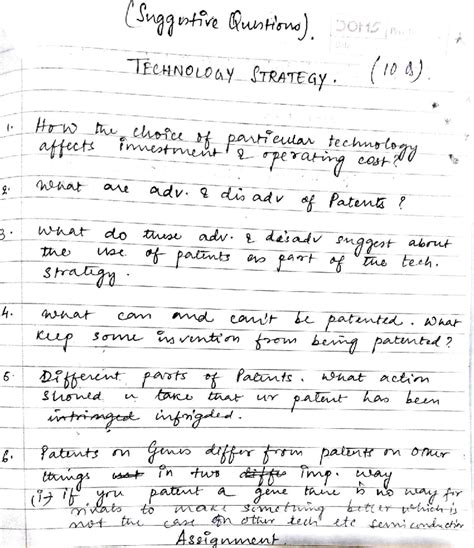 (Suggestive Questions).
DOMS
TECHNOLOGY STRATEGY. (10 Q).
1. How the choice of particular technology
affects investment & operating cost?
2. What are adv. & disadv of Patents ?
3. What do these adv. & disadv suggest about
the use of patents as part of the tech.
strategy.
4. What can and can't be patented. What
keep some invention from being patented?
5. Different parts of Patents. What action
should u take that ur patent has been
intringed infrigded.
6. Patents on Genes differ from patents on other
things in two imp. way
(i) if you patent a gene there is no way for
rivals to make something better which is
not the case on other tech etc semiconductor
Assignment